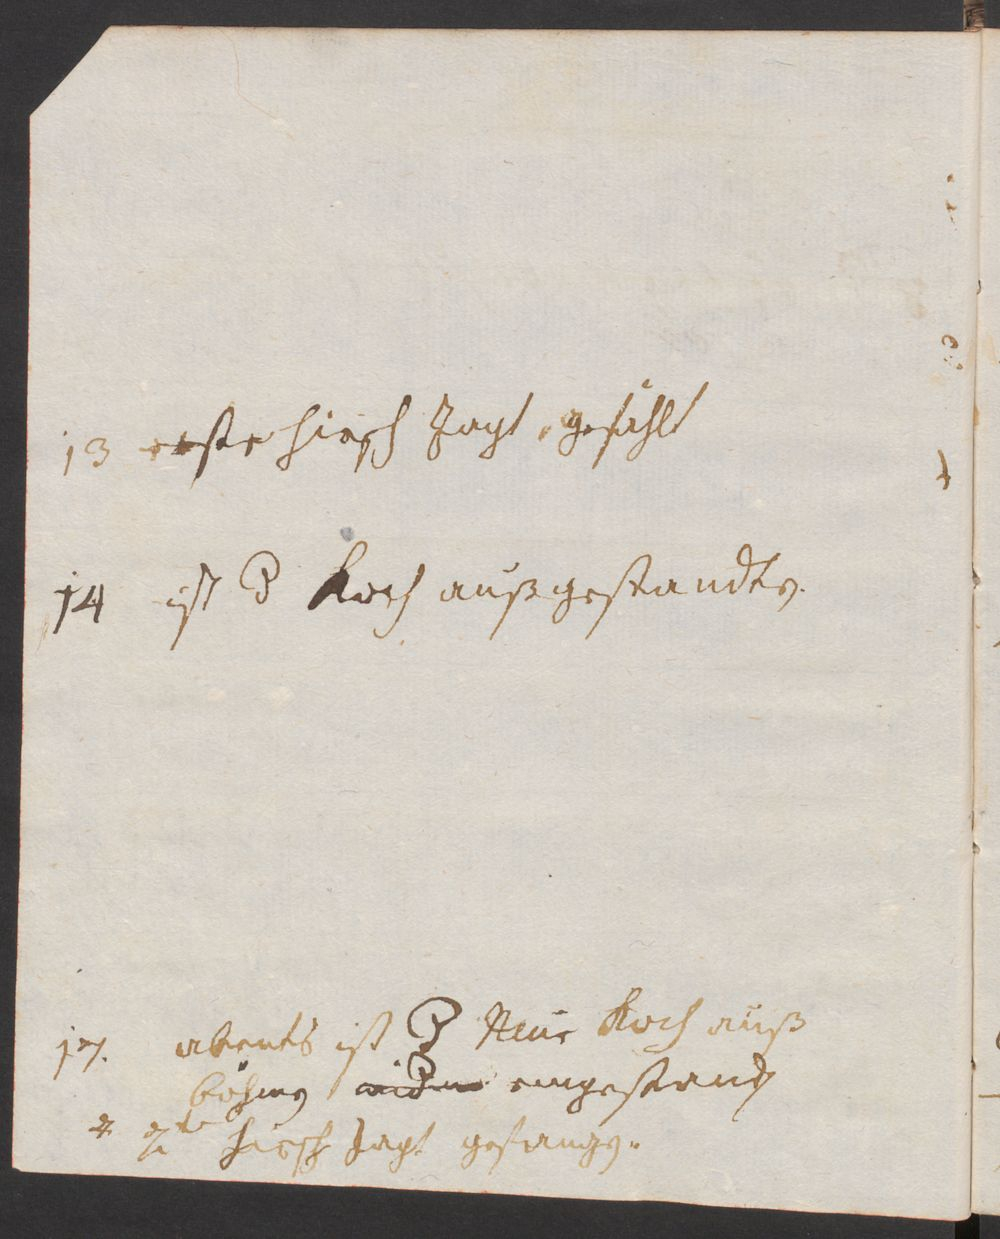 13 erste hirsch Jagt, gefählt
14 ist d Koch außgestandten.
17. abents ist d Neue Koch auß
böhmen eingestanden
* 2te hirsch Jagt gefangen.